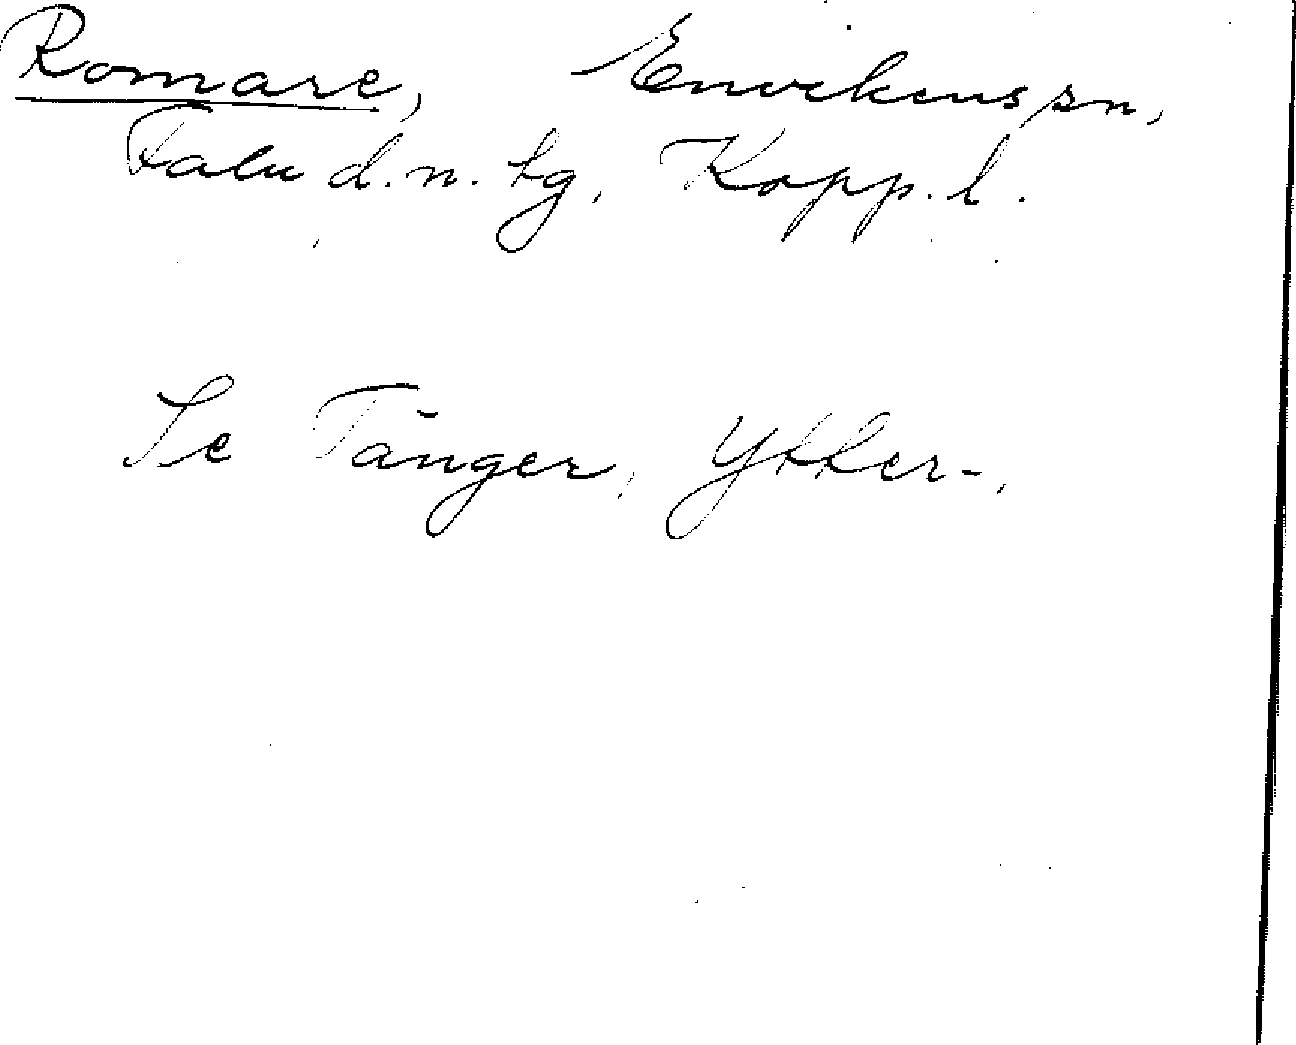 Romare, Envikens sn,
Falu d.n. tg, Kopp.l.
Se Tänger, Ytter-,